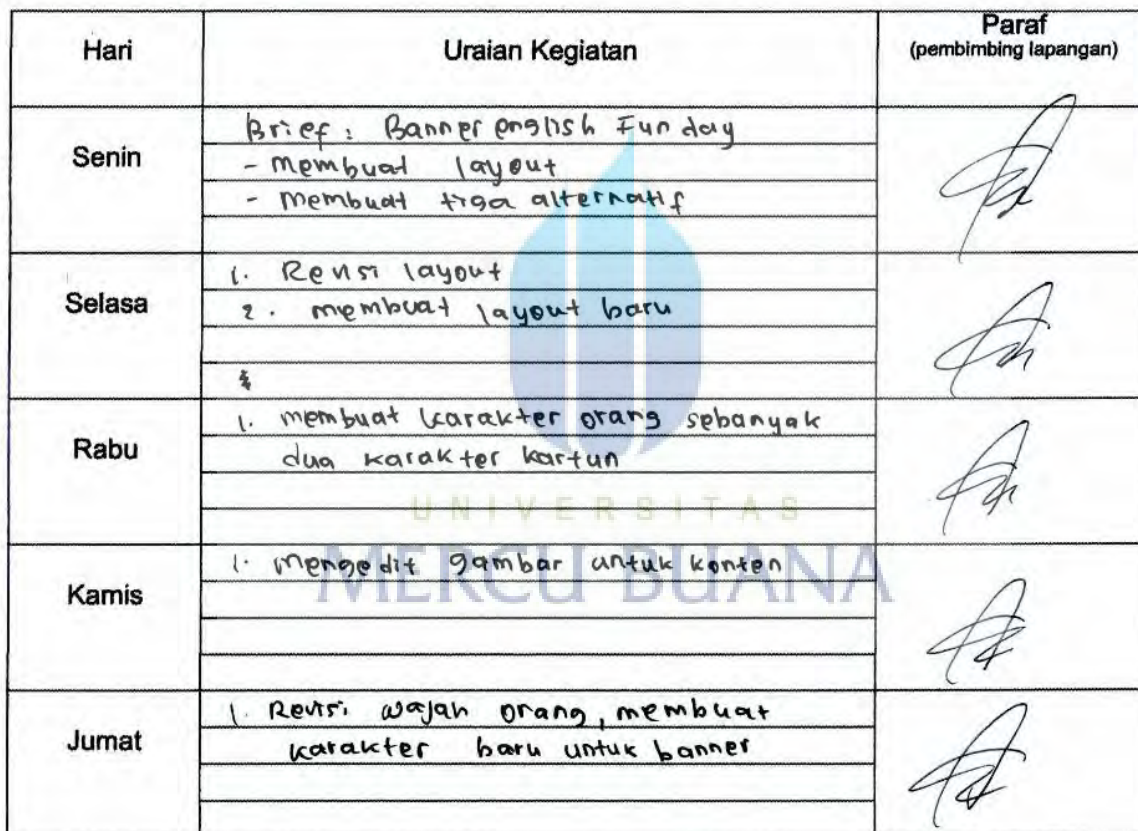 Hari
Uraian Kegiatan
Paraf
(pembimbing lapangan)
Senin
Brief : Banner english Fun day
- membuat layout
- membuat tiga alternatif
Selasa
1. Revisi layout
2. membuat layout baru
Rabu
1. membuat karakter orang sebanyak
dua karakter kartun
UNIVERSITAS
MERCU BUANA
Kamis
1. mengedit gambar untuk konten
Jumat
1. Revisi wajah orang, membuat
karakter baru untuk banner